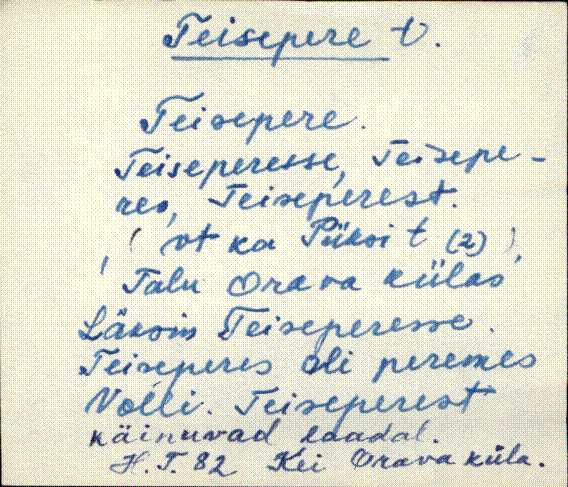 Teisepere t.
Teisepere.
Teiseperesse, Teisepe-
res, Teiseperest.
(vt ka Püksi t (2))
Talu Orava külas
Läksin Teiseperesse.
Teiseperes oli peremes
Volli. Teiseperest
käinuvad laadal.
H.T. 82 Kei Orava küla.